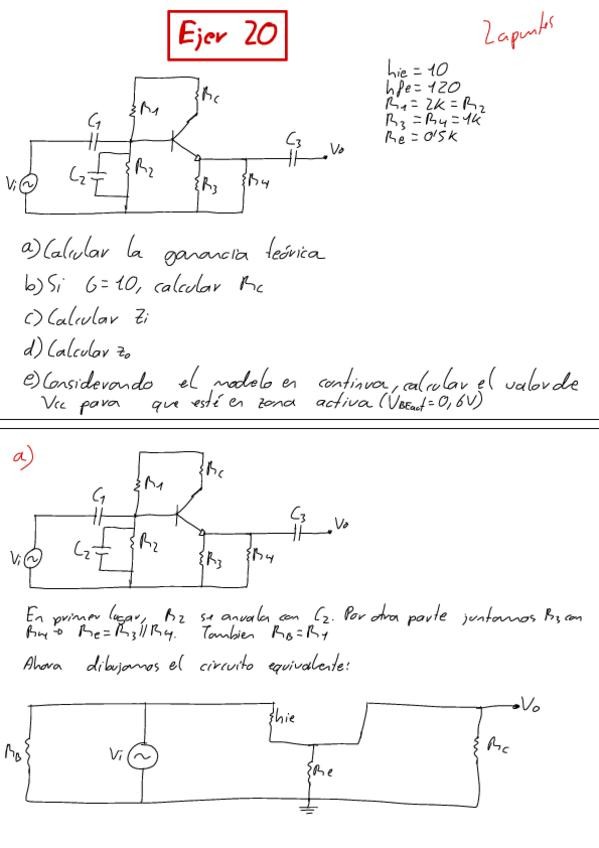 Ejer 20
2 apuntes
hie = 10
hfe = 120
R1 = 2K = R2
R3 = R4 = 1K
Re = 0'5K
R1
Rc
C1
C3
Vo
C2
R2
R3
R4
Vi
a) Calcular la ganancia teórica
b) Si G = 10, calcular Rc
c) Calcular Zi
d) Calcular Zo
e) Considerando el modelo en continua, calcular el valor de
Vcc para que esté en zona activa (VBEact = 0,6V)
a)
R1
Rc
C1
C3
Vo
C2
R2
R3
R4
Vi
En primer lugar, R2 se anula con C2. Por otra parte juntamos R3 con
R4 → Re = R3 // R4. Tambien RB = R1
Ahora dibujamos el circuito equivalente:
Vo
hie
RB
Vi
Re
Rc